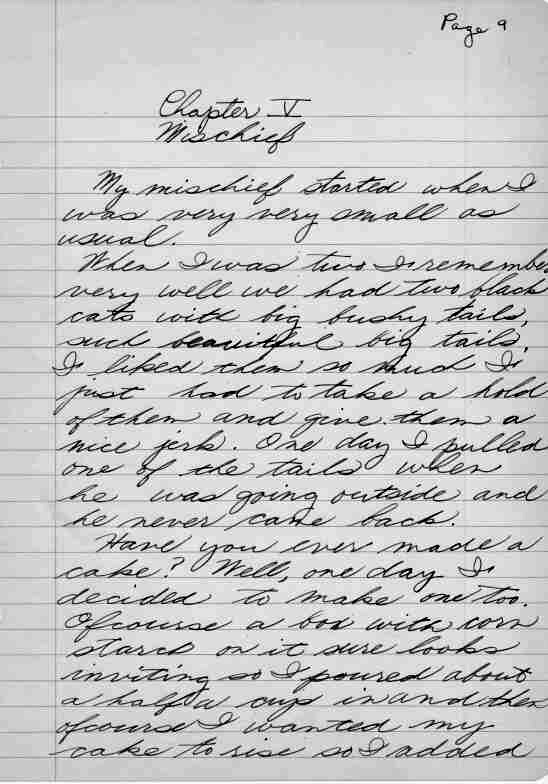 Page 9
Chapter V
Mischief
My mischief started when I
was very very small as
usual.
When I was two I remember
very well we had two black
cats with big bushy tails,
such beautiful big tails.
I liked them so much I
just had to take a hold
of them and give them a
nice jerk. One day I pulled
one of the tails when
he was going outside and
he never came back.
Have you ever made a
cake? Well, one day I
decided to make one too.
Ofcourse a box with corn
starch on it sure looks
inviting so I poured about
a half a cup in and then
ofcourse I wanted my
cake to rise so I added